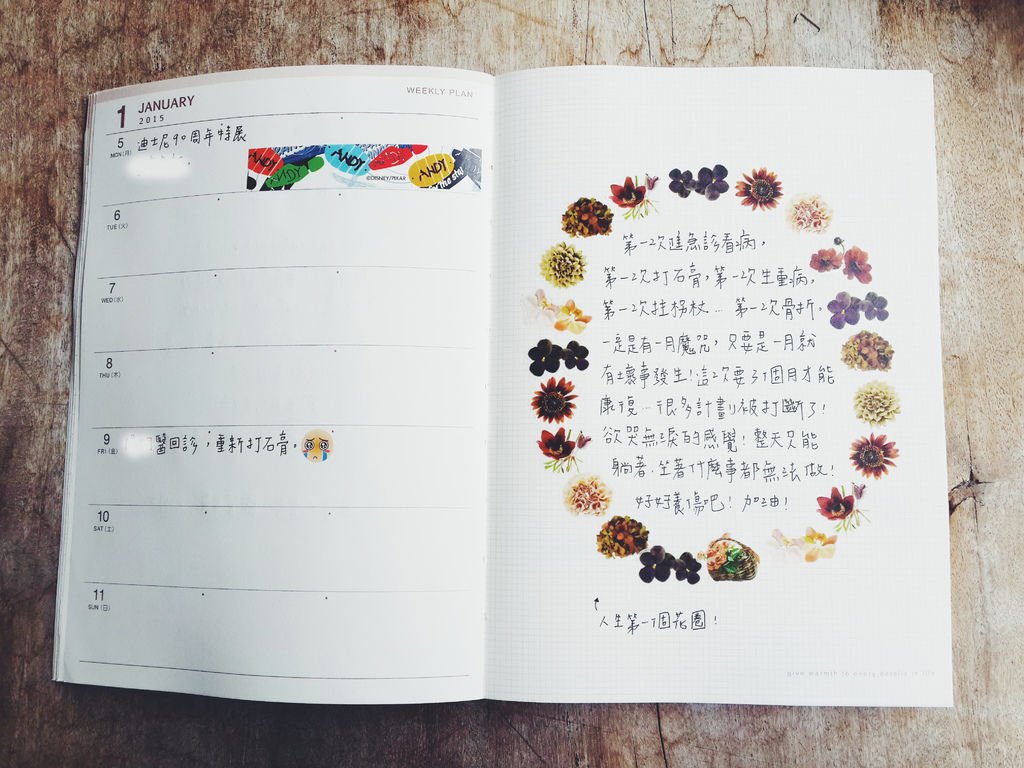 1 JANUARY
2015
WEEKLY PLAN
5 迪士尼90周年特展
MON(月)
ANDY
ANDY
ANDY
ANDY
©DISNEY/PIXAR
6
TUE(火)
7
WED(水)
8
THU(木)
9 醫回診，重新打石膏。
FRI(金)
10
SAT(土)
11
SUN(日)
第一次進急診看病，
第一次打石膏，第一次生重病，
第一次拄拐杖… 第一次骨折。
一定是有一月魔咒，只要是一月就
有壞事發生！這次要3個月才能
康復… 很多計劃被打斷了！
欲哭無淚的感覺！整天只能
躺著．坐著什麼事都無法做！
好好養傷吧！加油！
人生第一個花圈！
give warmth to every details in life